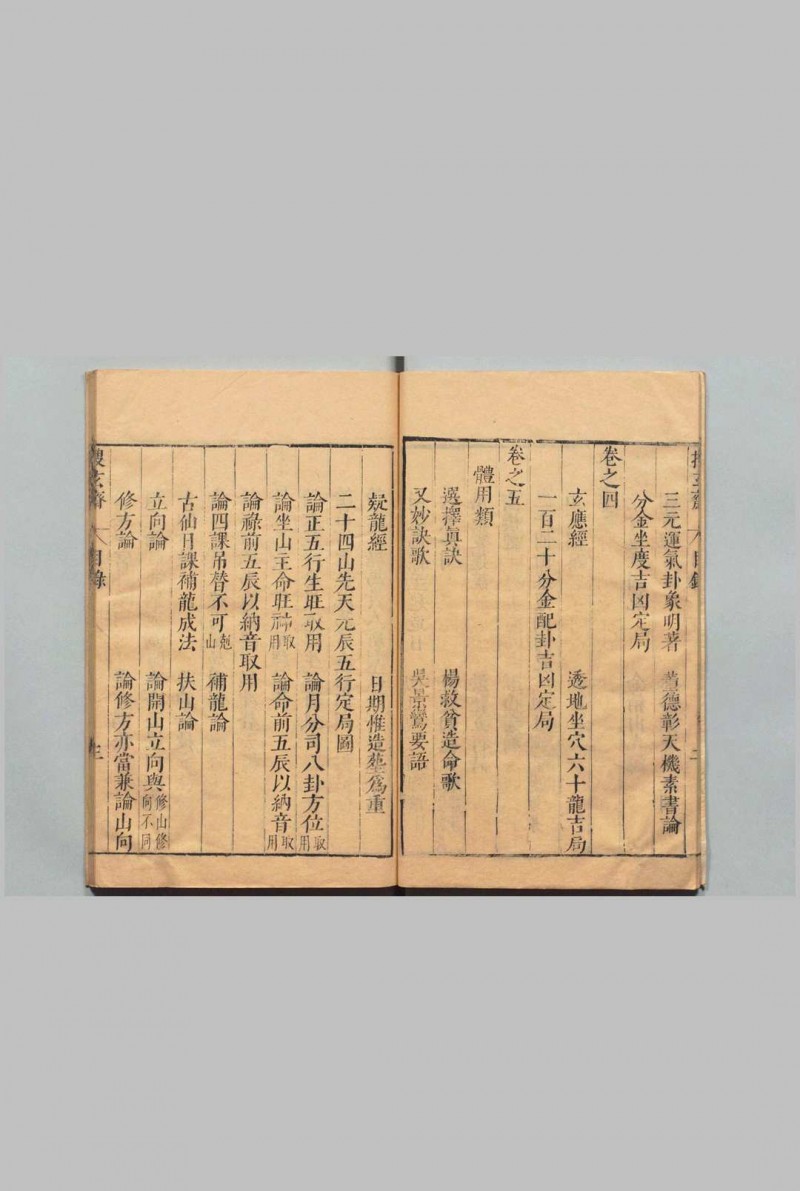 三元運氣卦象明著　黃德彰天機素書論
分金坐度吉凶定局
卷之四
玄應經　透地坐穴六十龍吉局
一百二十分金配卦吉凶定局
卷之五
體用類
選擇真訣　楊救貧造命歌
又妙訣歌　吳景鸞要語
疑龍經　日期惟造塟爲重
二十四山先天元辰五行定局圖
論正五行生旺取用　論月分司八卦方位取用
論坐山主命旺神取用　論命前五辰以納音取用
論祿前五辰以納音取用
論四課吊替不可尅山　補龍論
古仙日課補龍成法　扶山論
立向論　論開山立向與修山修向不同
修方論　論修方亦當兼論山向
目錄